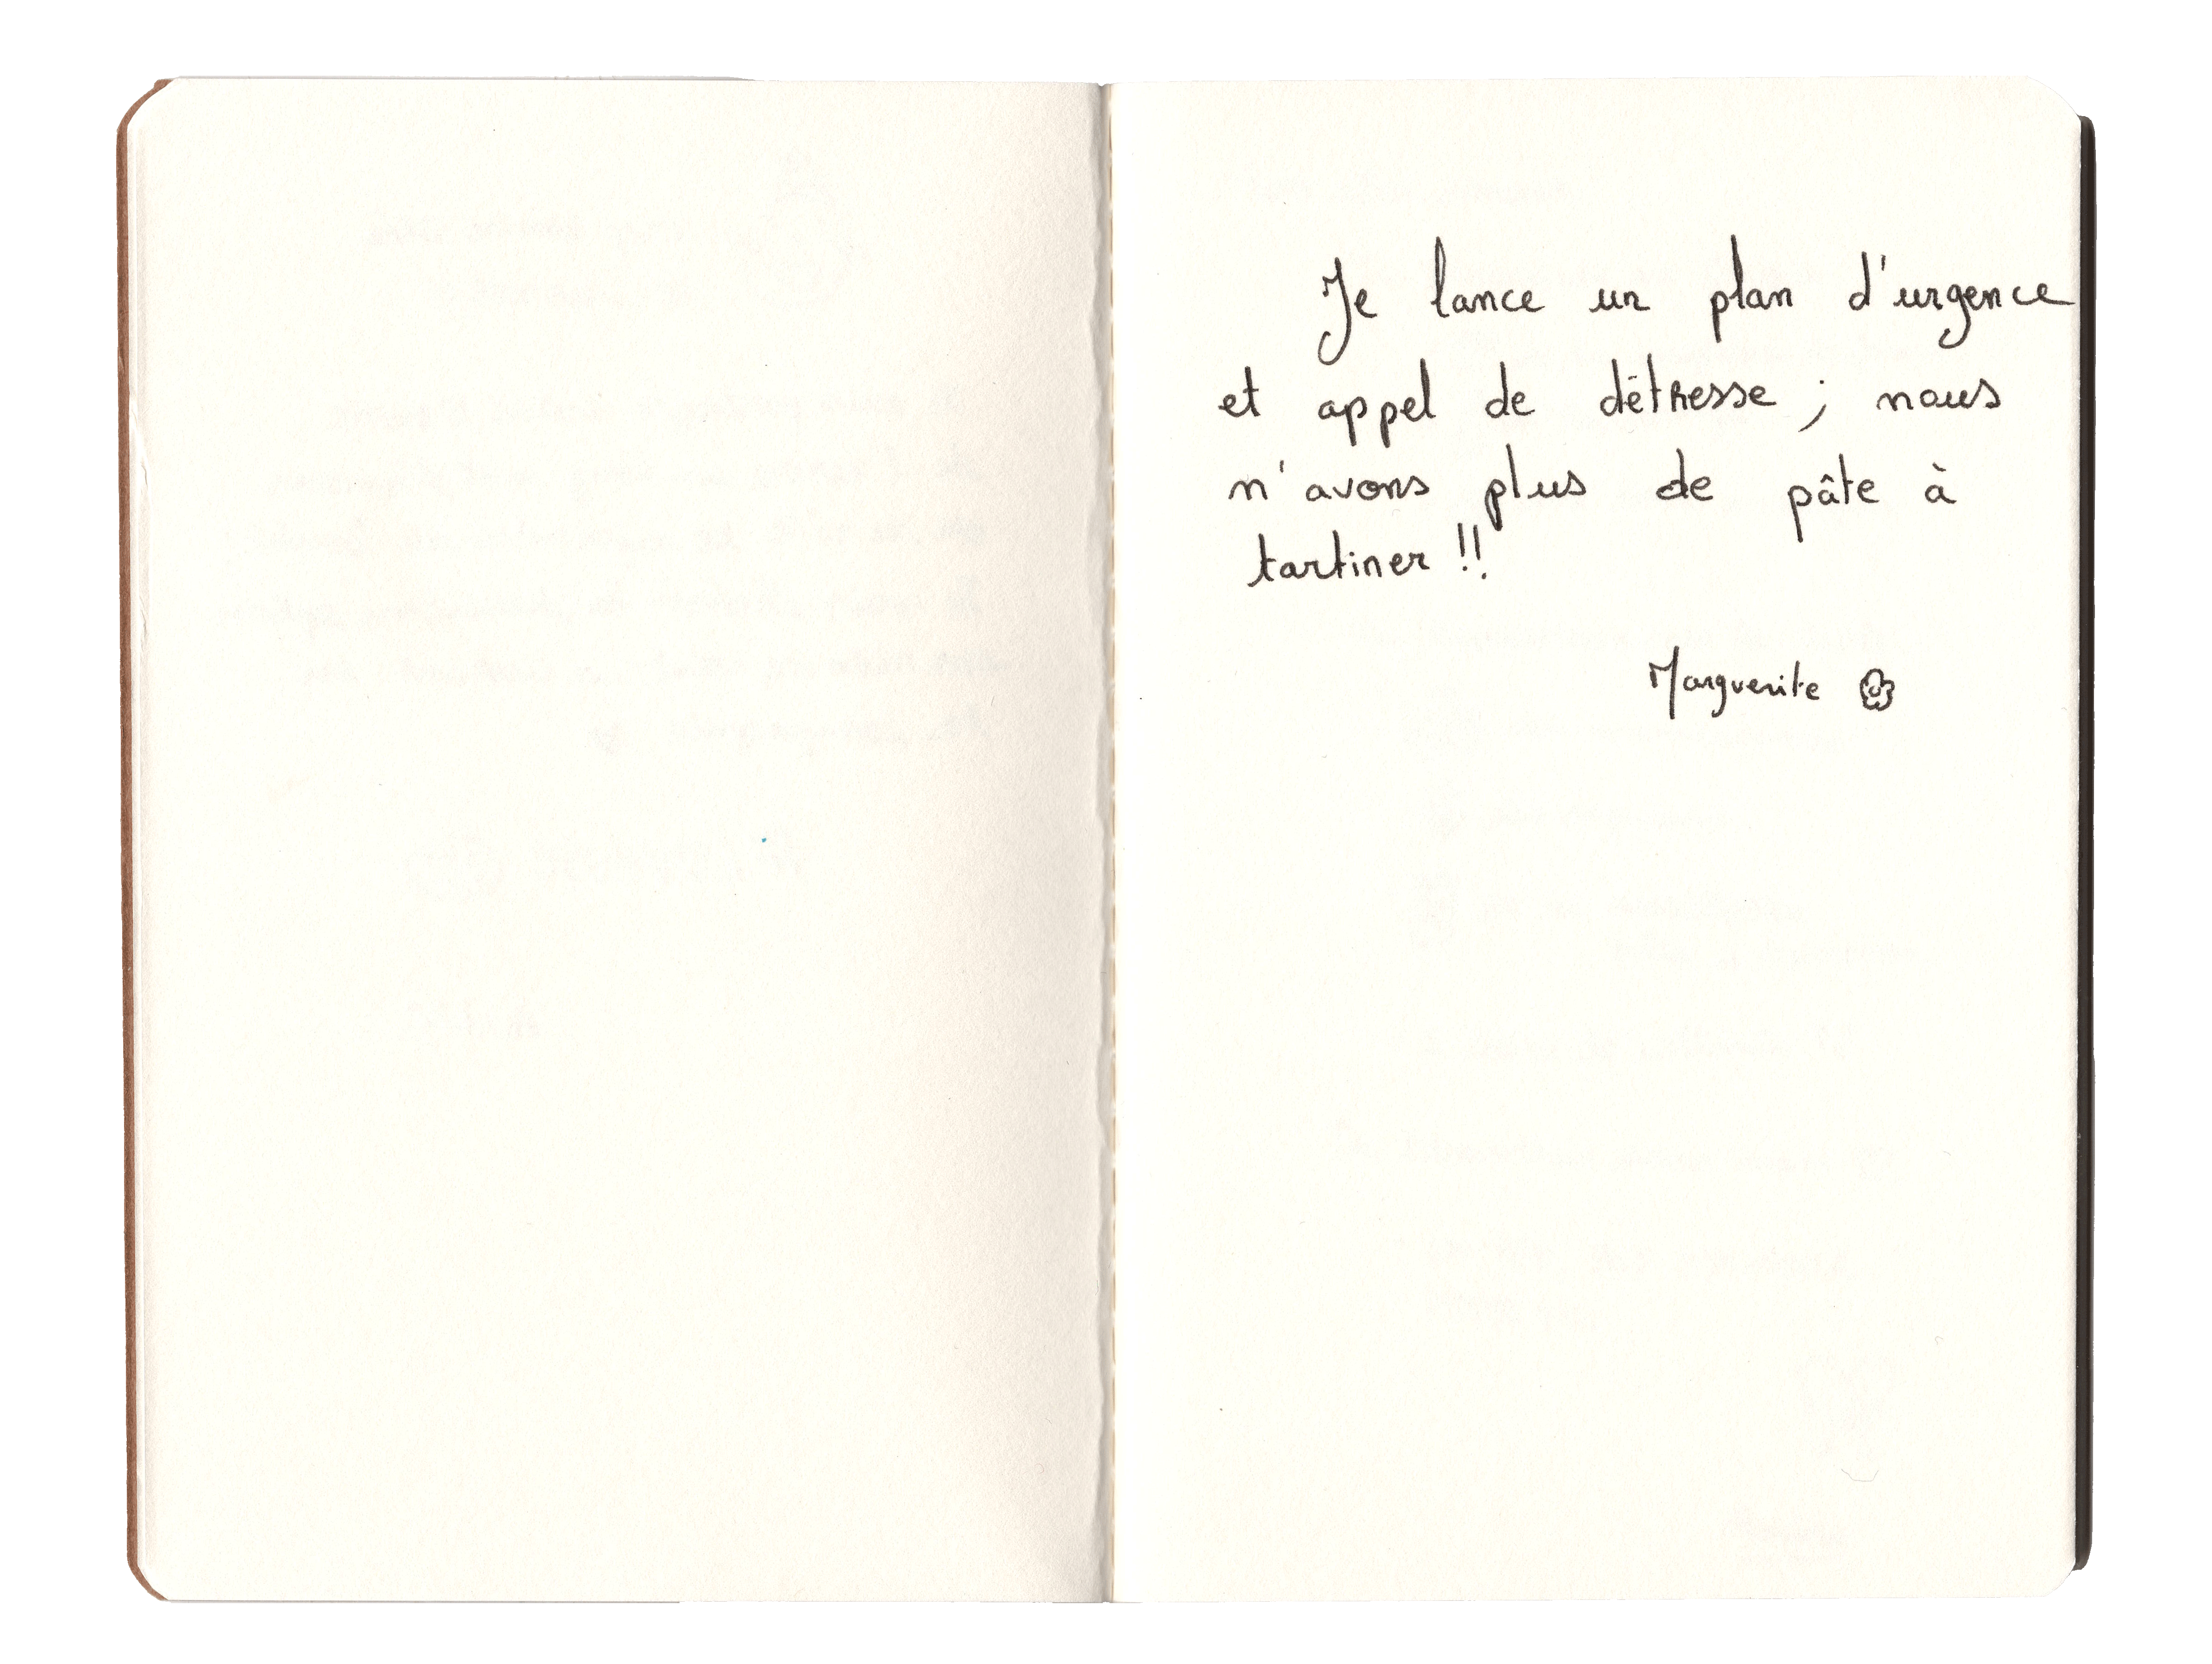 Je lance un plan d'urgence
et appel de détresse ; nous
n'avons plus de pâte à
tartiner !!
Marguerite